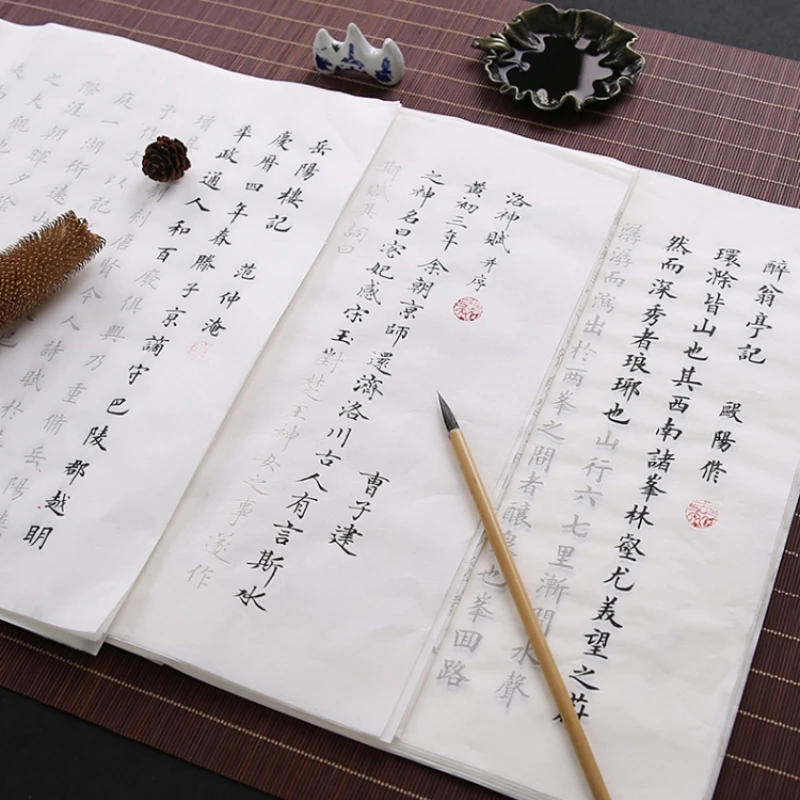 醉翁亭記 歐陽脩
環滁皆山也其西南諸峯林壑尤美望之蔚
然而深秀者琅琊也山行六七里漸聞水聲
潺潺而瀉出於兩峯之間者釀泉也峯回路
洛神賦 并序 曹子建
黃初三年余朝京師還濟洛川古人有言斯水
之神名曰宓妃感宋玉對楚王神女之事遂作
斯賦其詞曰
岳陽樓記 范仲淹
慶曆四年春滕子京謫守巴陵郡越明
年政通人和百廢俱興乃重脩岳陽樓
增 制刻唐賢今人詩賦於
予作文以記
庭一湖銜遠山
際涯朝暉夕陰
之大觀也